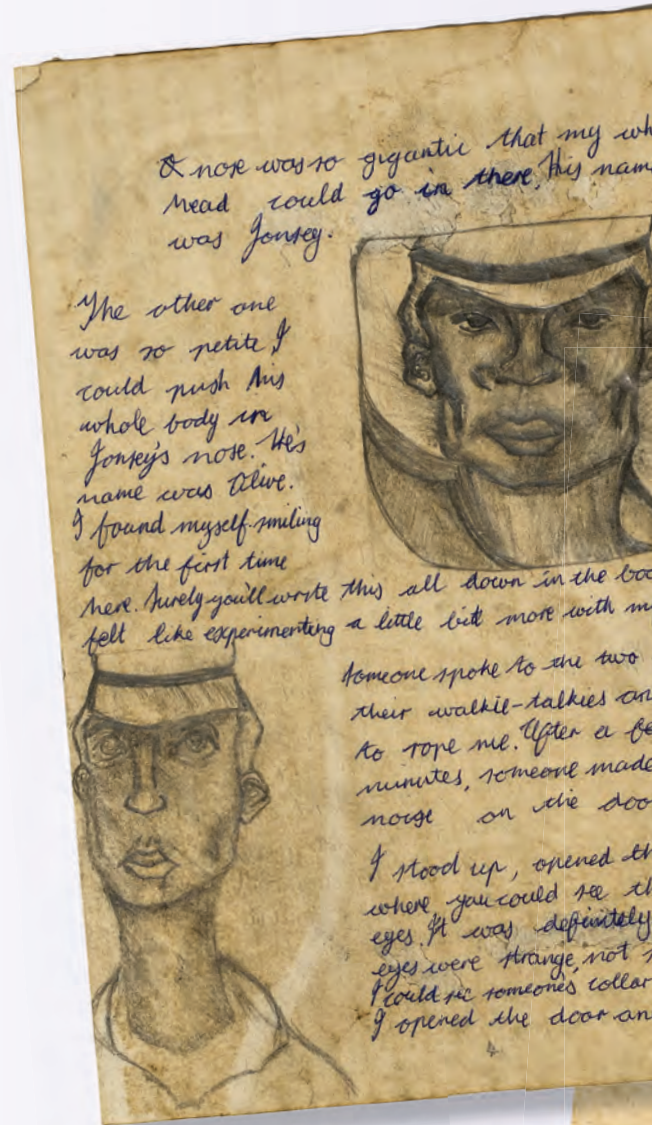 & nose was so gigantic that my wh
head could go in there, His nam
was Jonsey.
The other one
was so petite, I
could push his
whole body in
Jonsey's nose. He's
name was Olive.
I found myself smiling
for the first time
here. Surely you'll wrote this all down in the boo
felt like experimenting a little bit more with m
Someone spoke to the two
their walkie-talkies an
to rope me. After a fe
minutes, someone made
noise on the doo
I stood up, opened th
where you could see th
eyes. It was definitely
eyes were strange, not s
I could see someone's collar
I opened the door an
4